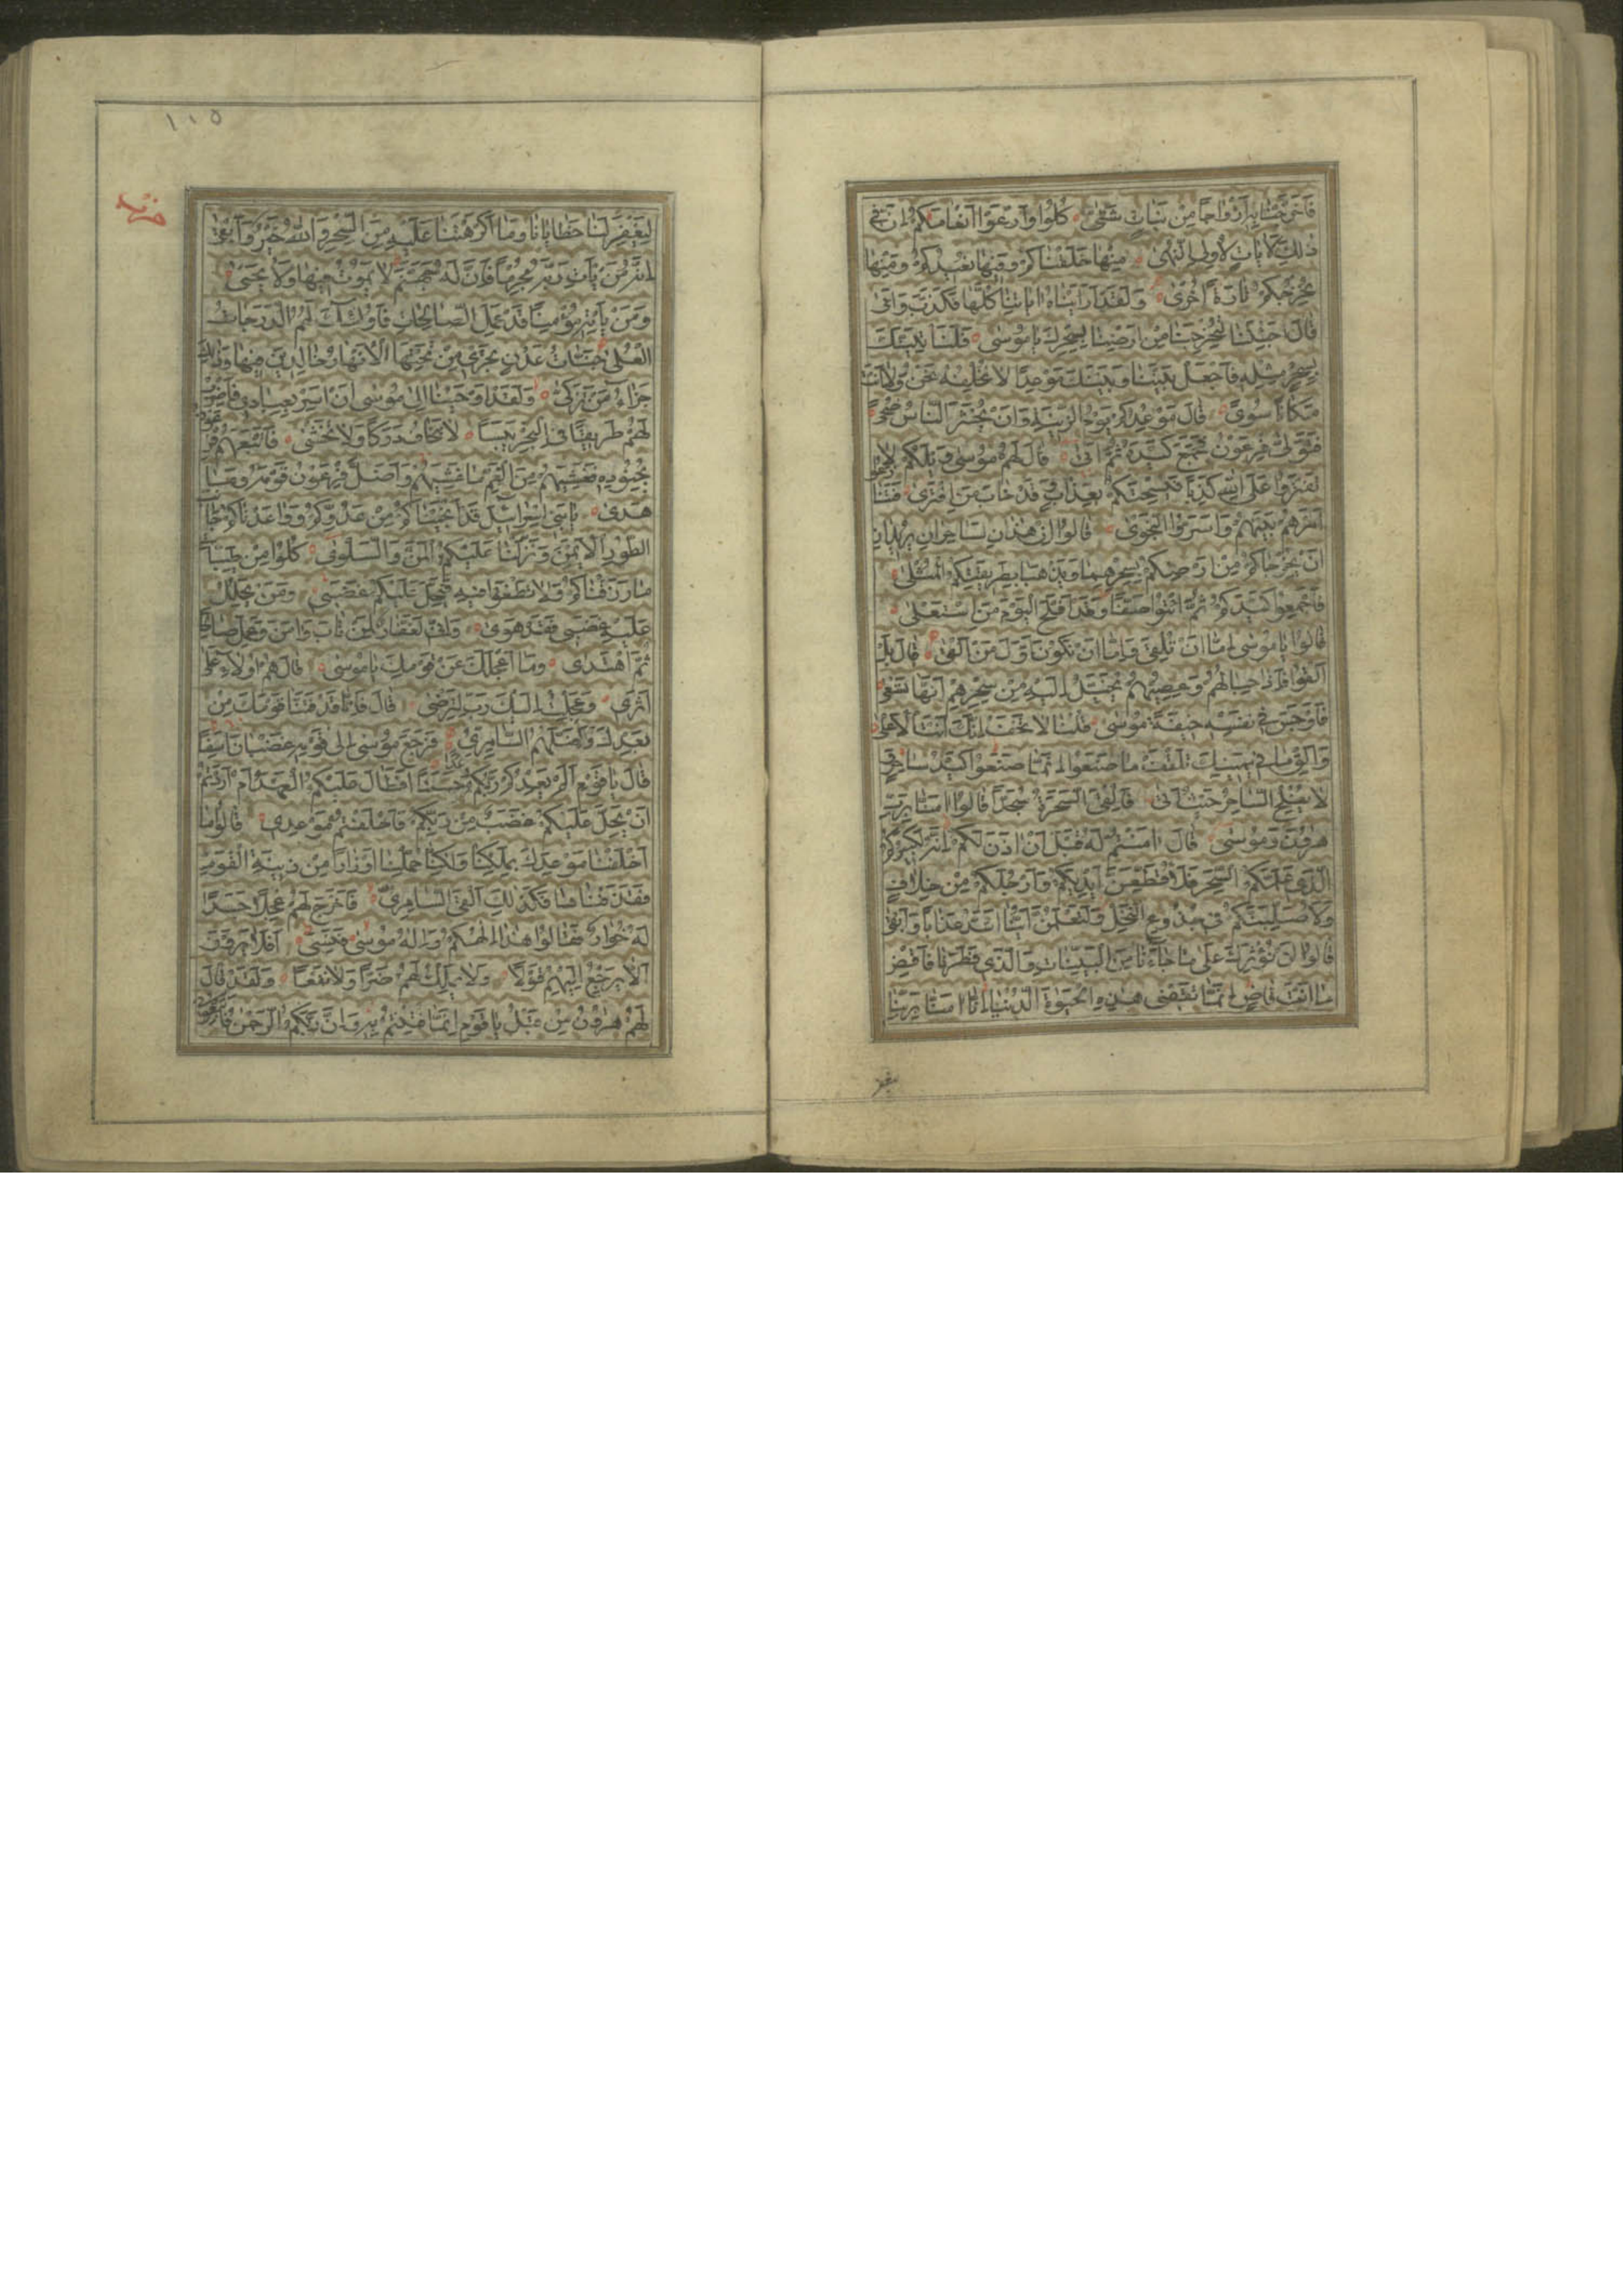 فَاَخْرَجْنٰا بِهٖ اَزْوٰاجًا مِنْ نَبٰاتٍ شَتّٰى كُلُوا وَارْعَوْا اَنْعٰامَكُمْ اِنَّ فى
ذٰلِكَ لَاٰيٰاتٍ لِاُولِى النُّهٰى مِنْهٰا خَلَقْنٰاكُمْ وَفيهٰا نُعيدُكُمْ وَمِنْهٰا
نُخْرِجُكُمْ تٰارَةً اُخْرٰى وَلَقَدْ اَرَيْنٰاهُ اٰيٰاتِنٰا كُلَّهٰا فَكَذَّبَ وَاَبٰى
قٰالَ اَجِئْتَنٰا لِتُخْرِجَنٰا مِنْ اَرْضِنٰا بِسِحْرِكَ يٰا مُوسٰى فَلَنَأْتِيَنَّكَ
بِسِحْرٍ مِثْلِهٖ فَاجْعَلْ بَيْنَنٰا وَبَيْنَكَ مَوْعِدًا لٰا نُخْلِفُهُ نَحْنُ وَلٰا اَنْتَ
مَكٰانًا سُوًى قٰالَ مَوْعِدُكُمْ يَوْمُ الزّينَةِ وَاَنْ يُحْشَرَ النّٰاسُ ضُحًى
فَتَوَلّٰى فِرْعَوْنُ فَجَمَعَ كَيْدَهُ ثُمَّ اَتٰى قٰالَ لَهُمْ مُوسٰى وَيْلَكُمْ لٰا
تَفْتَرُوا عَلَى اللّٰهِ كَذِبًا فَيُسْحِتَكُمْ بِعَذٰابٍ وَقَدْ خٰابَ مَنِ افْتَرٰى فَتَنٰازَعُوا
اَمْرَهُمْ بَيْنَهُمْ وَاَسَرُّوا النَّجْوٰى قٰالُوا اِنْ هٰذٰانِ لَسٰاحِرٰانِ يُريدٰانِ
اَنْ يُخْرِجٰاكُمْ مِنْ اَرْضِكُمْ بِسِحْرِهِمٰا وَيَذْهَبٰا بِطَريقَتِكُمُ الْمُثْلٰى
فَاَجْمِعُوا كَيْدَكُمْ ثُمَّ ائْتُوا صَفًّا وَقَدْ اَفْلَحَ الْيَوْمَ مَنِ اسْتَعْلٰى
قٰالُوا يٰا مُوسٰى اِمّٰا اَنْ تُلْقِىَ وَاِمّٰا اَنْ نَكُونَ اَوَّلَ مَنْ اَلْقٰى قٰالَ بَلْ
اَلْقُوا فَاِذٰا حِبٰالُهُمْ وَعِصِيُّهُمْ يُخَيَّلُ اِلَيْهِ مِنْ سِحْرِهِمْ اَنَّهٰا تَسْعٰى
فَاَوْجَسَ فى نَفْسِهٖ خيفَةً مُوسٰى قُلْنٰا لٰا تَخَفْ اِنَّكَ اَنْتَ الْاَعْلٰى
وَاَلْقِ مٰا فى يَمينِكَ تَلْقَفْ مٰا صَنَعُوا اِنَّمٰا صَنَعُوا كَيْدُ سٰاحِرٍ وَ
لٰا يُفْلِحُ السّٰاحِرُ حَيْثُ اَتٰى فَاُلْقِىَ السَّحَرَةُ سُجَّدًا قٰالُوا اٰمَنّٰا بِرَبِّ
هٰرُونَ وَمُوسٰى قٰالَ اٰمَنْتُمْ لَهُ قَبْلَ اَنْ اٰذَنَ لَكُمْ اِنَّهُ لَكَبيرُكُمُ
الَّذى عَلَّمَكُمُ السِّحْرَ فَلَاُقَطِّعَنَّ اَيْدِيَكُمْ وَاَرْجُلَكُمْ مِنْ خِلٰافٍ
وَلَاُصَلِّبَنَّكُمْ فى جُذُوعِ النَّخْلِ وَلَتَعْلَمُنَّ اَيُّنٰا اَشَدُّ عَذٰابًا وَاَبْقٰى
قٰالُوا لَنْ نُؤْثِرَكَ عَلٰى مٰا جٰاءَنٰا مِنَ الْبَيِّنٰاتِ وَالَّذى فَطَرَنٰا فَاقْضِ
مٰا اَنْتَ قٰاضٍ اِنَّمٰا تَقْضى هٰذِهِ الْحَيٰوةَ الدُّنْيٰا اِنّٰا اٰمَنّٰا بِرَبِّنٰا
١١٥
حزب
لِيَغْفِرَ لَنٰا خَطٰايٰانٰا وَمٰا اَكْرَهْتَنٰا عَلَيْهِ مِنَ السِّحْرِ وَاللّٰهُ خَيْرٌ وَاَبْقٰى
اِنَّهُ مَنْ يَأْتِ رَبَّهُ مُجْرِمًا فَاِنَّ لَهُ جَهَنَّمَ لٰا يَمُوتُ فيهٰا وَلٰا يَحْيٰى
وَمَنْ يَأْتِهٖ مُؤْمِنًا قَدْ عَمِلَ الصّٰالِحٰاتِ فَاُولٰئِكَ لَهُمُ الدَّرَجٰاتُ
الْعُلٰى جَنّٰاتُ عَدْنٍ تَجْرى مِنْ تَحْتِهَا الْاَنْهٰارُ خٰالِدينَ فيهٰا وَذٰلِكَ
جَزٰاءُ مَنْ تَزَكّٰى وَلَقَدْ اَوْحَيْنٰا اِلٰى مُوسٰى اَنْ اَسْرِ بِعِبٰادى فَاضْرِبْ
لَهُمْ طَريقًا فِى الْبَحْرِ يَبَسًا لٰا تَخٰافُ دَرَكًا وَلٰا تَخْشٰى فَاَتْبَعَهُمْ فِرْعَوْنُ
بِجُنُودِهٖ فَغَشِيَهُمْ مِنَ الْيَمِّ مٰا غَشِيَهُمْ وَاَضَلَّ فِرْعَوْنُ قَوْمَهُ وَمٰا
هَدٰى يٰا بَنى اِسْرٰائيلَ قَدْ اَنْجَيْنٰاكُمْ مِنْ عَدُوِّكُمْ وَوٰاعَدْنٰاكُمْ جٰانِبَ
الطُّورِ الْاَيْمَنَ وَنَزَّلْنٰا عَلَيْكُمُ الْمَنَّ وَالسَّلْوٰى كُلُوا مِنْ طَيِّبٰاتِ
مٰا رَزَقْنٰاكُمْ وَلٰا تَطْغَوْا فيهِ فَيَحِلَّ عَلَيْكُمْ غَضَبى وَمَنْ يَحْلِلْ
عَلَيْهِ غَضَبى فَقَدْ هَوٰى وَاِنّى لَغَفّٰارٌ لِمَنْ تٰابَ وَاٰمَنَ وَعَمِلَ صٰالِحًا
ثُمَّ اهْتَدٰى وَمٰا اَعْجَلَكَ عَنْ قَوْمِكَ يٰا مُوسٰى قٰالَ هُمْ اُولٰاءِ عَلٰى
اَثَرى وَعَجِلْتُ اِلَيْكَ رَبِّ لِتَرْضٰى قٰالَ فَاِنّٰا قَدْ فَتَنّٰا قَوْمَكَ مِنْ
بَعْدِكَ وَاَضَلَّهُمُ السّٰامِرِىُّ فَرَجَعَ مُوسٰى اِلٰى قَوْمِهٖ غَضْبٰانَ اَسِفًا
قٰالَ يٰا قَوْمِ اَلَمْ يَعِدْكُمْ رَبُّكُمْ وَعْدًا حَسَنًا اَفَطٰالَ عَلَيْكُمُ الْعَهْدُ اَمْ اَرَدْتُمْ
اَنْ يَحِلَّ عَلَيْكُمْ غَضَبٌ مِنْ رَبِّكُمْ فَاَخْلَفْتُمْ مَوْعِدى قٰالُوا مٰا
اَخْلَفْنٰا مَوْعِدَكَ بِمَلْكِنٰا وَلٰكِنّٰا حُمِّلْنٰا اَوْزٰارًا مِنْ زينَةِ الْقَوْمِ
فَقَذَفْنٰاهٰا فَكَذٰلِكَ اَلْقَى السّٰامِرِىُّ فَاَخْرَجَ لَهُمْ عِجْلًا جَسَدًا
لَهُ خُوٰارٌ فَقٰالُوا هٰذٰا اِلٰهُكُمْ وَاِلٰهُ مُوسٰى فَنَسِىَ اَفَلٰا يَرَوْنَ
اَلّٰا يَرْجِعُ اِلَيْهِمْ قَوْلًا وَلٰا يَمْلِكُ لَهُمْ ضَرًّا وَلٰا نَفْعًا وَلَقَدْ قٰالَ
لَهُمْ هٰرُونُ مِنْ قَبْلُ يٰا قَوْمِ اِنَّمٰا فُتِنْتُمْ بِهٖ وَاِنَّ رَبَّكُمُ الرَّحْمٰنُ فَاتَّبِعُونى